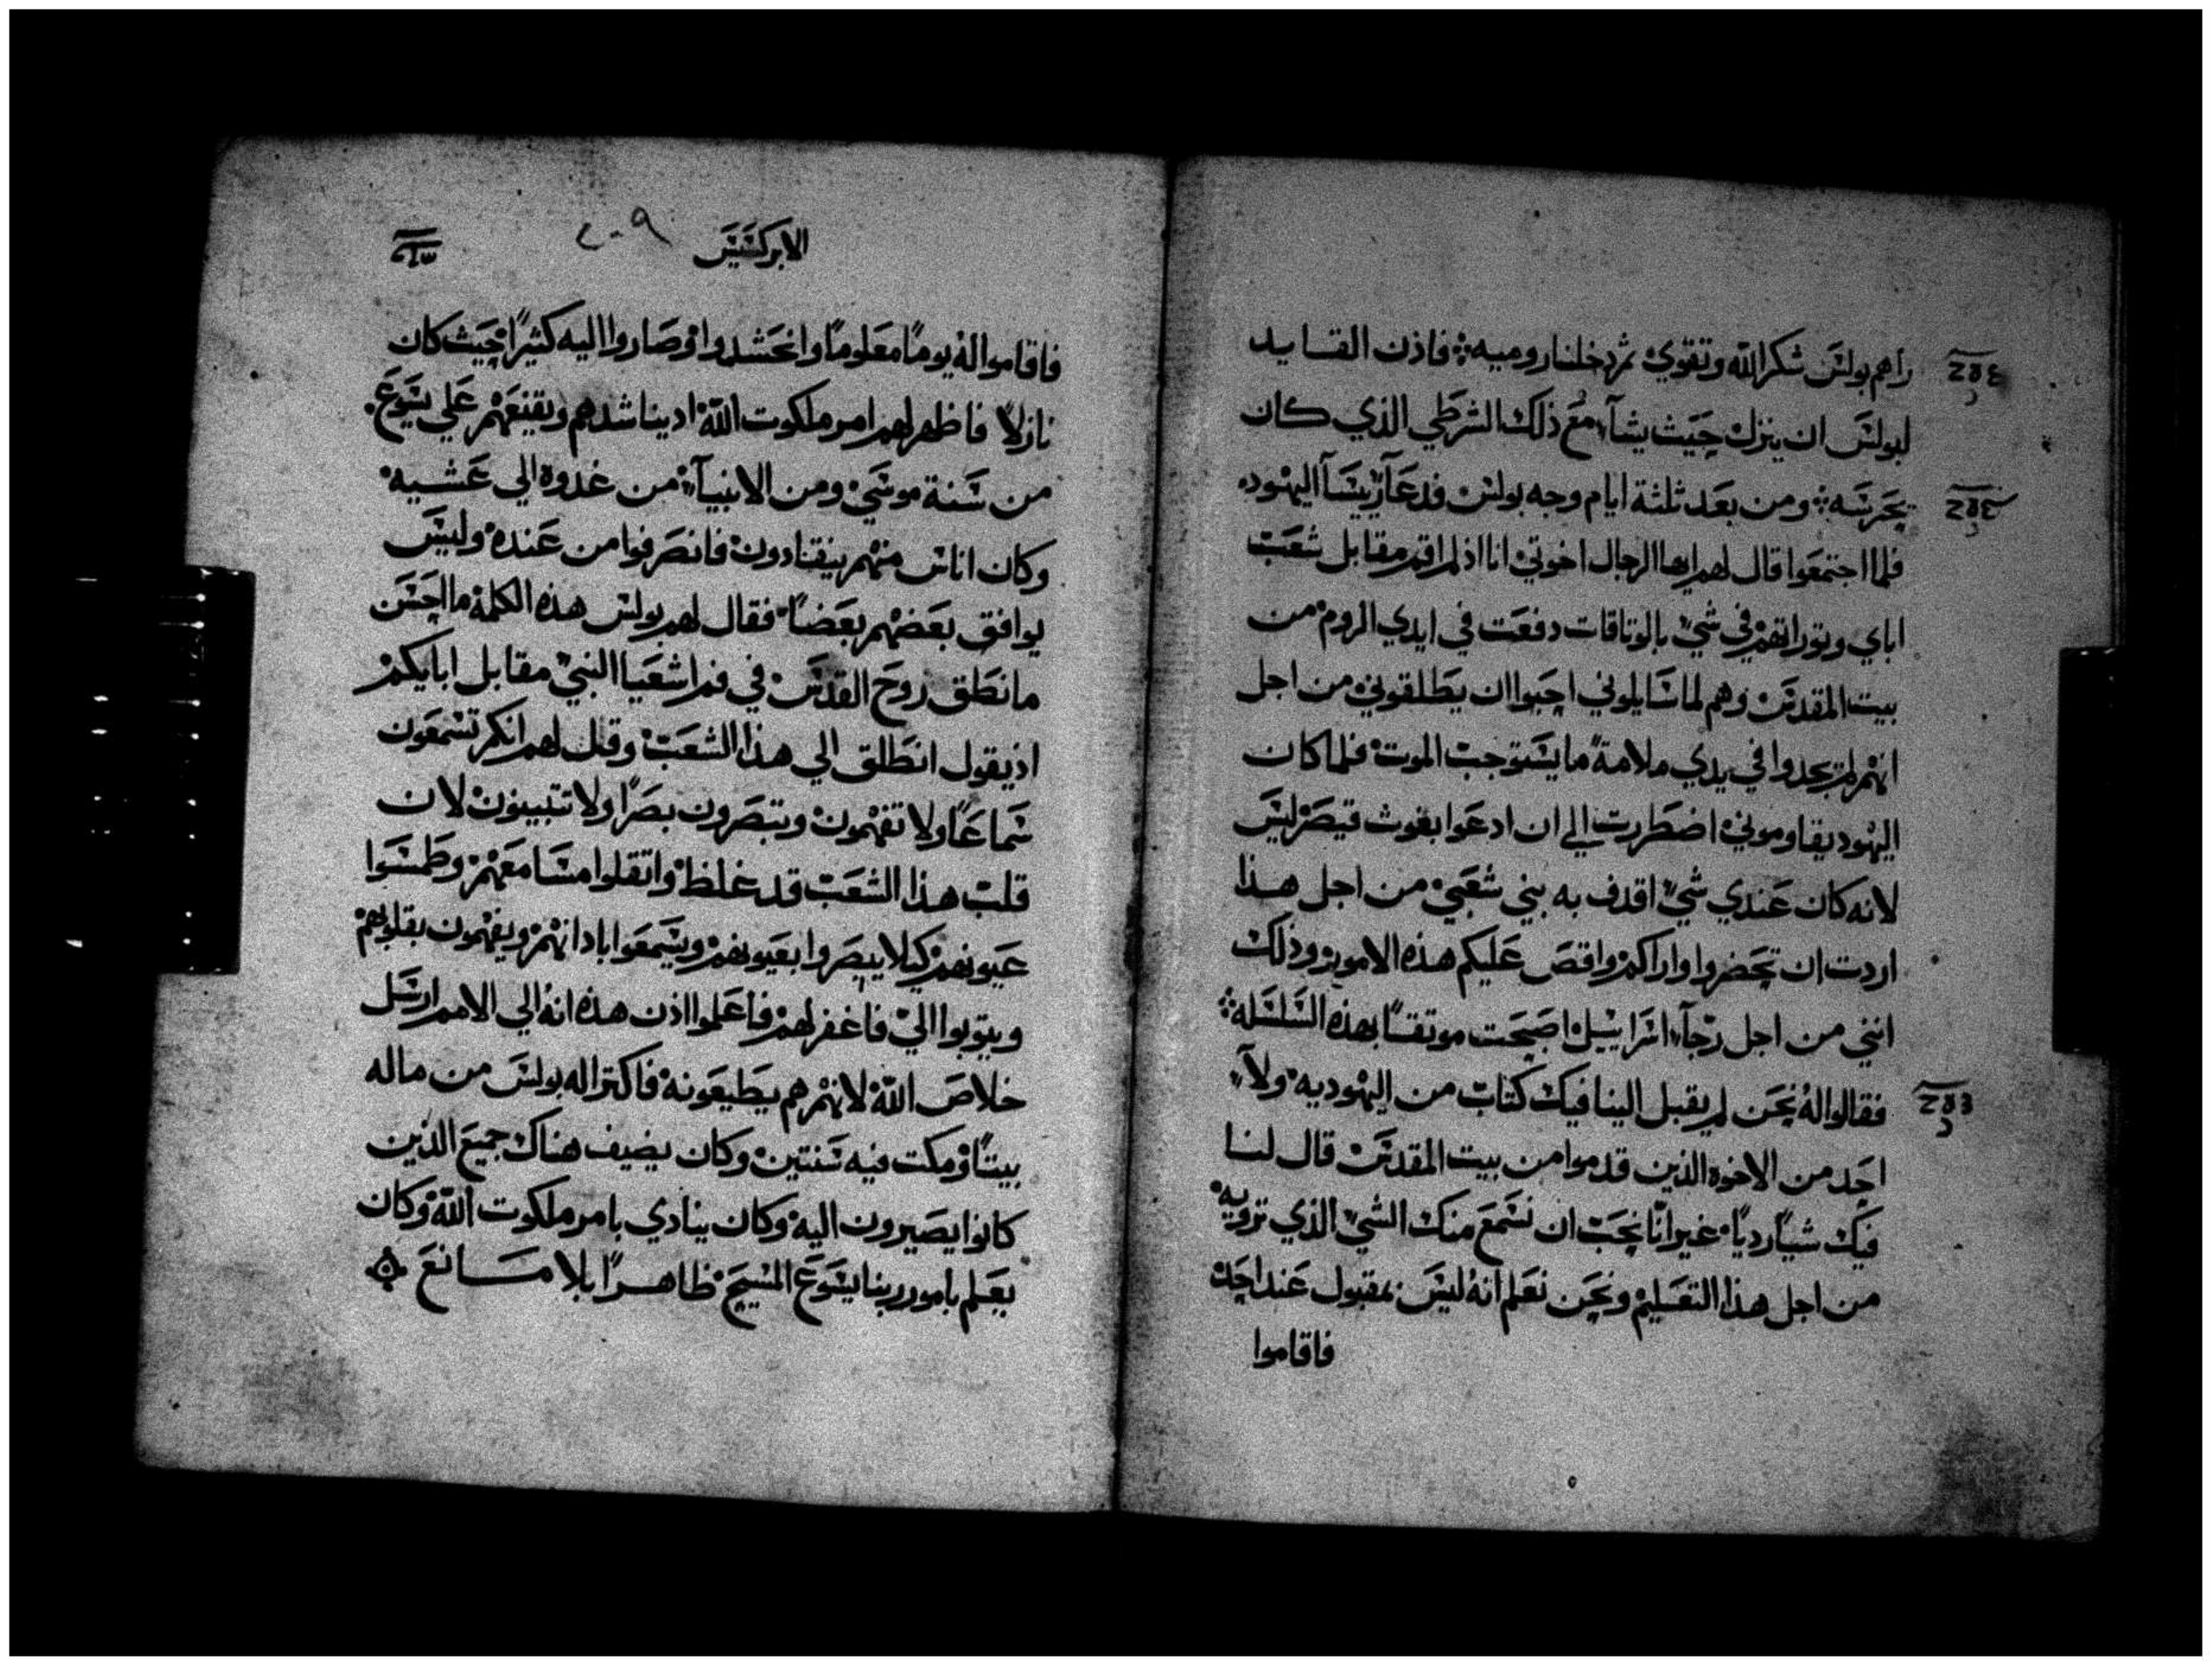 راهم بولس شكر الله وتقوي ثم دخلنا روميه فاذن القايد
لبولس ان ينزل حيث يشآء مع ذلك الشرطي الذي كان
يحرسه ومن بعد ثلثة ايام وجه بولس فدعآ ريسآ اليهود
فلما اجتمعوا قال لهم ايها الرجال اخوتي انا اذ لم اقم مقابل شعب
اباي وتوراتهم في شي بالوتاقات دفعت في ايدي الروم من
بيت المقدس وهم لما سايلوني احبوا ان يطلقوني من اجل
انهم لم يجدوا في يدي ملامة ما يستوجب الموت فلما كان
اليهود يقاوموني اضطررت الي ان ادعوا بغوث قيصر ليس
لانه كان عندي شي اقدف به بني شعبي من اجل هذا
اردت ان تحضروا واراكم واقص عليكم هذه الامور وذلك
انني من اجل رجآء اسراييل اصبحت موتقا بهذه السلسله
فقالوا له نحن لم يقبل الينا فيك كتاب من اليهوديه ولآ
احد من الاخوه الذين قدموا من بيت المقدس قال لنا
فيك شيا رديا غير انا نحب ان نسمع منك الشي الذي ترويه
من اجل هذا التعليم ونحن نعلم انه ليس بمقبول عند احد
فاقاموا
الابركسيس ٢٠٩
فاقاموا له يوما معلوما وانحشدوا وصاروا اليه كثيرا حيث كان
نازلا فاظهر لهم امر ملكوت الله اد يناشدهم ويقنعهم علي يسوع
من سنة موسي ومن الانبيآء من غدوة الي عشيه
وكان اناس منهم ينقادون فانصرفوا من عنده وليس
يوافق بعضهم بعضا فقال لهم بولس هذه الكلمة ما احسن
ما نطق روح القدس في فم اشعيا النبي مقابل ابايكم
اذ يقول انطلق الي هذا الشعب وقل لهم انكم تسمعون
سماعا ولا تفهمون وتبصرون بصرا ولا تتبينون لان
قلب هذا الشعب قد غلظ واتقلوا مسامعهم وطمسوا
عيونهم كيلا يبصروا بعيونهم ويسمعوا باداانهم ويفهمون بقلوبهم
ويتوبوا الي فاغفر لهم فاعلموا اذن هذه انه الي الامم ارسل
خلاص الله لانهم هم يطيعونه فاكترا له بولس من ماله
بيتا ومكت فيه سنتين وكان يضيف هناك جميع الذين
كانوا يصيرون اليه وكان ينادي بامر ملكوت الله وكان
يعلم بامور ربنا يسوع المسيح ظاهرا بلا مانع